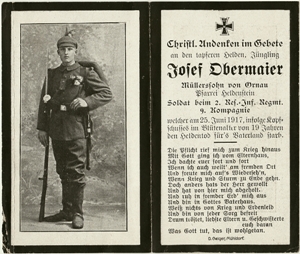 Christl. Andenken im Gebete
an den tapferen Helden, Jüngling
Josef Obermaier
Müllerssohn von Ornau
Pfarrei Heldenstein
Soldat beim 2. Res.-Inf. Regmt.
9. Kompagnie
welcher am 25. Juni 1917, infolge Kopf-
schusses im Blütenalter von 19 Jahren
den Heldentod für's Vaterland starb.
Die Pflicht rief mich zum Krieg hinaus
Mit Gott ging ich vom Elternhaus,
Ich ging wohl in die Ferne fort
Wenn ich auch weilt' am fremden Ort
Und freute mich auf's Wiederseh'n,
Wenn Krieg und Sturm zu Ende gehn.
Doch anders hats der Herr gewollt
Und hat von hier mich abgeholt,
Und nahm mich auf und führt mich aus
Bin ich in Gottes Vaterhaus.
Weiß nichts von Krieg und Erdenleid
Und bin von jeder Sorg befreit
Drum o weinet Eltern, u. Geschwisterte
euch daran
Was Gott tut, das ist wohlgetan.
D. Geiger, Mühldorf.